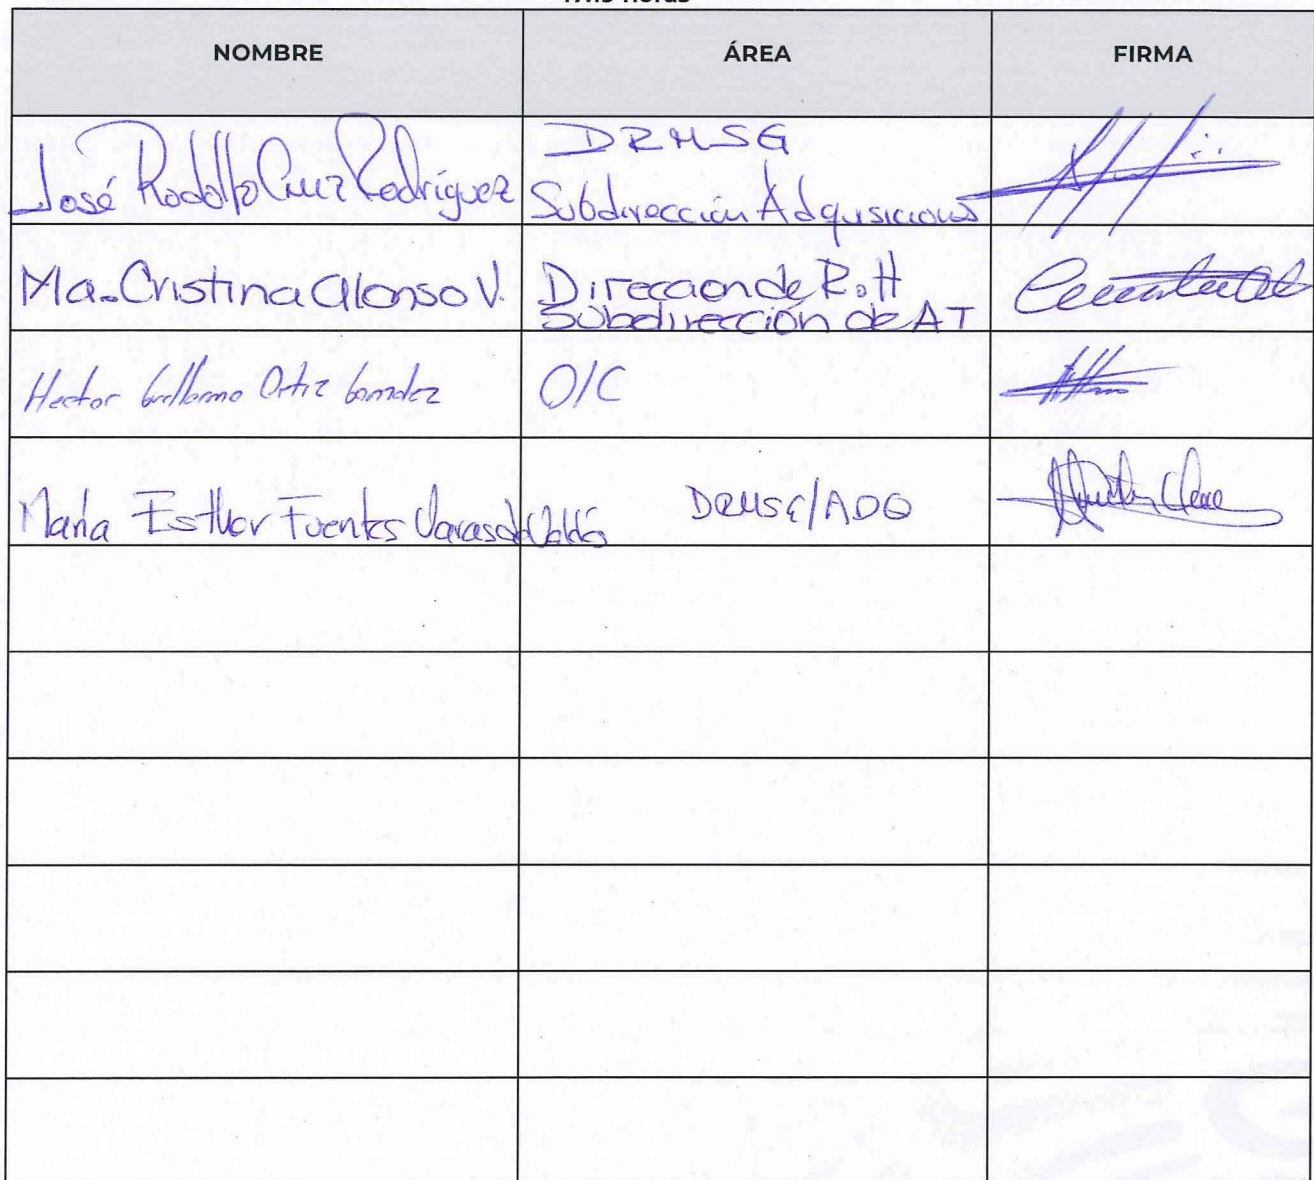 horas
NOMBRE ÁREA FIRMA
José Rodolfo Cruz Rodríguez
DRMSG
Subdirección Adquisiciones
Ma. Cristina Alonso V.
Dirección de R.H
Subdirección de AT
Hector Guillermo Ortiz
OIC
María Esther Fuentes
DRMSG/ADQ